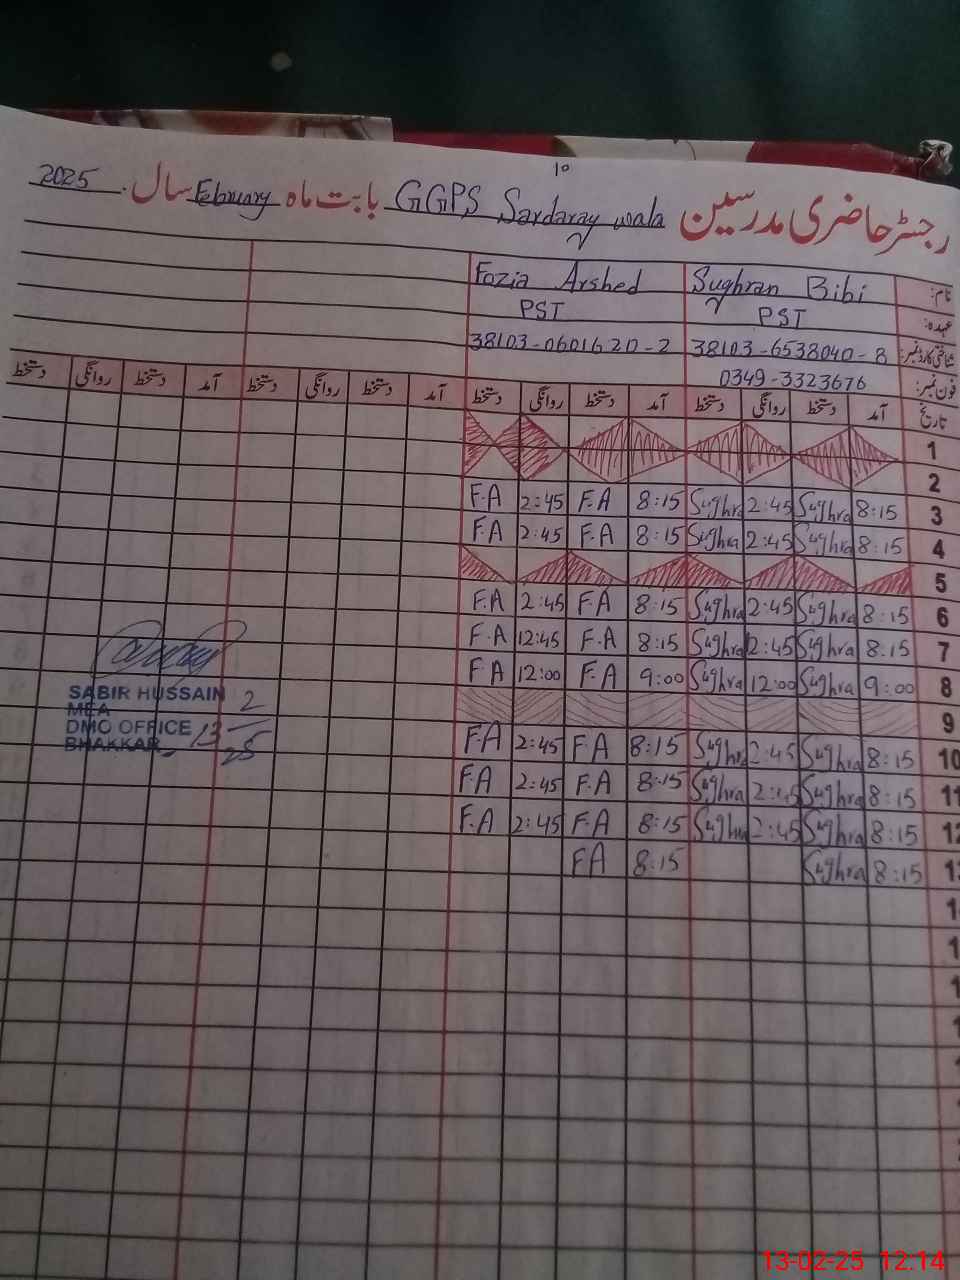 10
رجسٹر حاضری مدرسین GGPS Sardaray wala بابت ماہ February سال 2025
نام: Sughran Bibi Fozia Arshed
عہدہ: PST PST
شناختی کارڈ نمبر: 38103-6538040-8 38103-0601620-2
فون نمبر: 0349-3323676
تاریخ آمد دستخط روانگی دستخط آمد دستخط روانگی دستخط آمد دستخط روانگی دستخط آمد دستخط روانگی دستخط
1
2
3 8:15 Sughra 2:45 Sughra 8:15 F.A 2:45 F.A
4 8:15 Sughra 2:45 Sughra 8:15 F.A 2:45 F.A
5
6 8:15 Sughra 2:45 Sughra 8:15 F.A 2:45 F.A
7 8:15 Sughra 12:45 Sughra 8:15 F.A 12:45 F.A
8 9:00 Sughra 12:00 Sughra 9:00 F.A 12:00 F.A
9
10 8:15 Sughra 2:45 Sughra 8:15 F.A 2:45 F.A
11 8:15 Sughra 2:45 Sughra 8:15 F.A 2:45 F.A
12 8:15 Sughra 2:45 Sughra 8:15 F.A 2:45 F.A
13 8:15 Sughra 8:15 F.A
SABIR HUSSAIN
MEA
DMO OFFICE
BHAKKAR
13-2-25
13-02-25 12:14